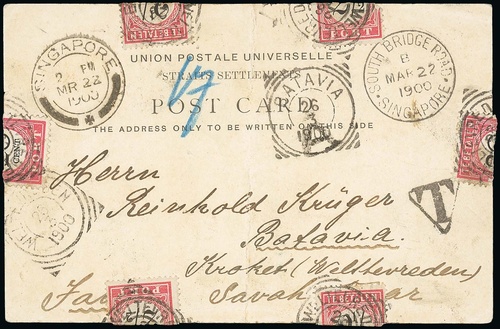 UNION POSTALE UNIVERSELLE
STRAITS SETTLEMENTS
POST CARD
THE ADDRESS ONLY TO BE WRITTEN ON THIS SIDE
SINGAPORE
2 PM
MR 22
1900
SOUTH BRIDGE ROAD
B
MAR 22
1900
SINGAPORE
BATAVIA
26
1900
PORT
CENT
TE BETALEN
26
1900
T
Herrn
Reinhold Krüger
Batavia.
Kroket (Weltevreden)
Java